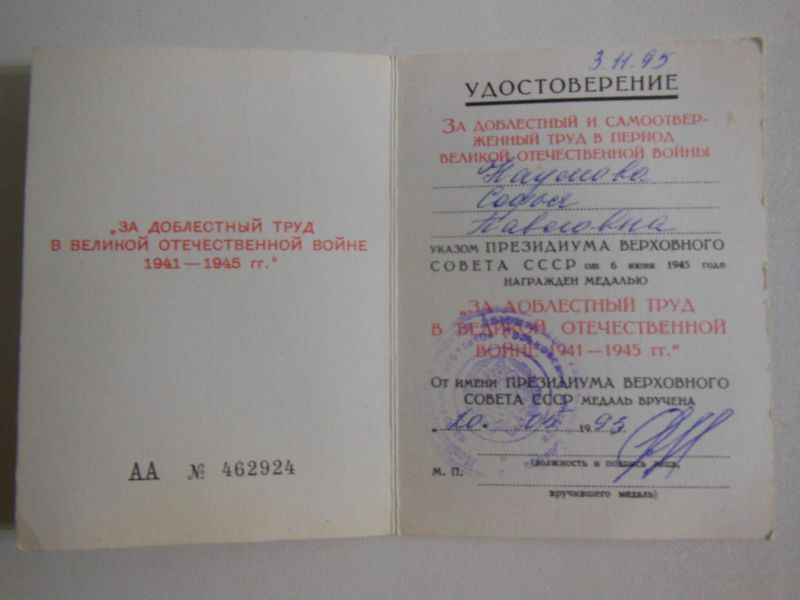 „ЗА ДОБЛЕСТНЫЙ ТРУД
В ВЕЛИКОЙ ОТЕЧЕСТВЕННОЙ ВОЙНЕ
1941 — 1945 гг.“
АА № 462924
3.11.95
УДОСТОВЕРЕНИЕ
ЗА ДОБЛЕСТНЫЙ И САМООТВЕР-
ЖЕННЫЙ ТРУД В ПЕРИОД
ВЕЛИКОЙ ОТЕЧЕСТВЕННОЙ ВОЙНЫ
Наумова
Софья
Павловна
УКАЗОМ ПРЕЗИДИУМА ВЕРХОВНОГО
СОВЕТА СССР от 6 июня 1945 года
НАГРАЖДЕН МЕДАЛЬЮ
„ЗА ДОБЛЕСТНЫЙ ТРУД
В ВЕЛИКОЙ ОТЕЧЕСТВЕННОЙ
ВОЙНЕ 1941 — 1945 гг.“
От имени ПРЕЗИДИУМА ВЕРХОВНОГО
СОВЕТА СССР МЕДАЛЬ ВРУЧЕНА
1993 г.
(должность и подпись лица,
М. П.
вручившего медаль)